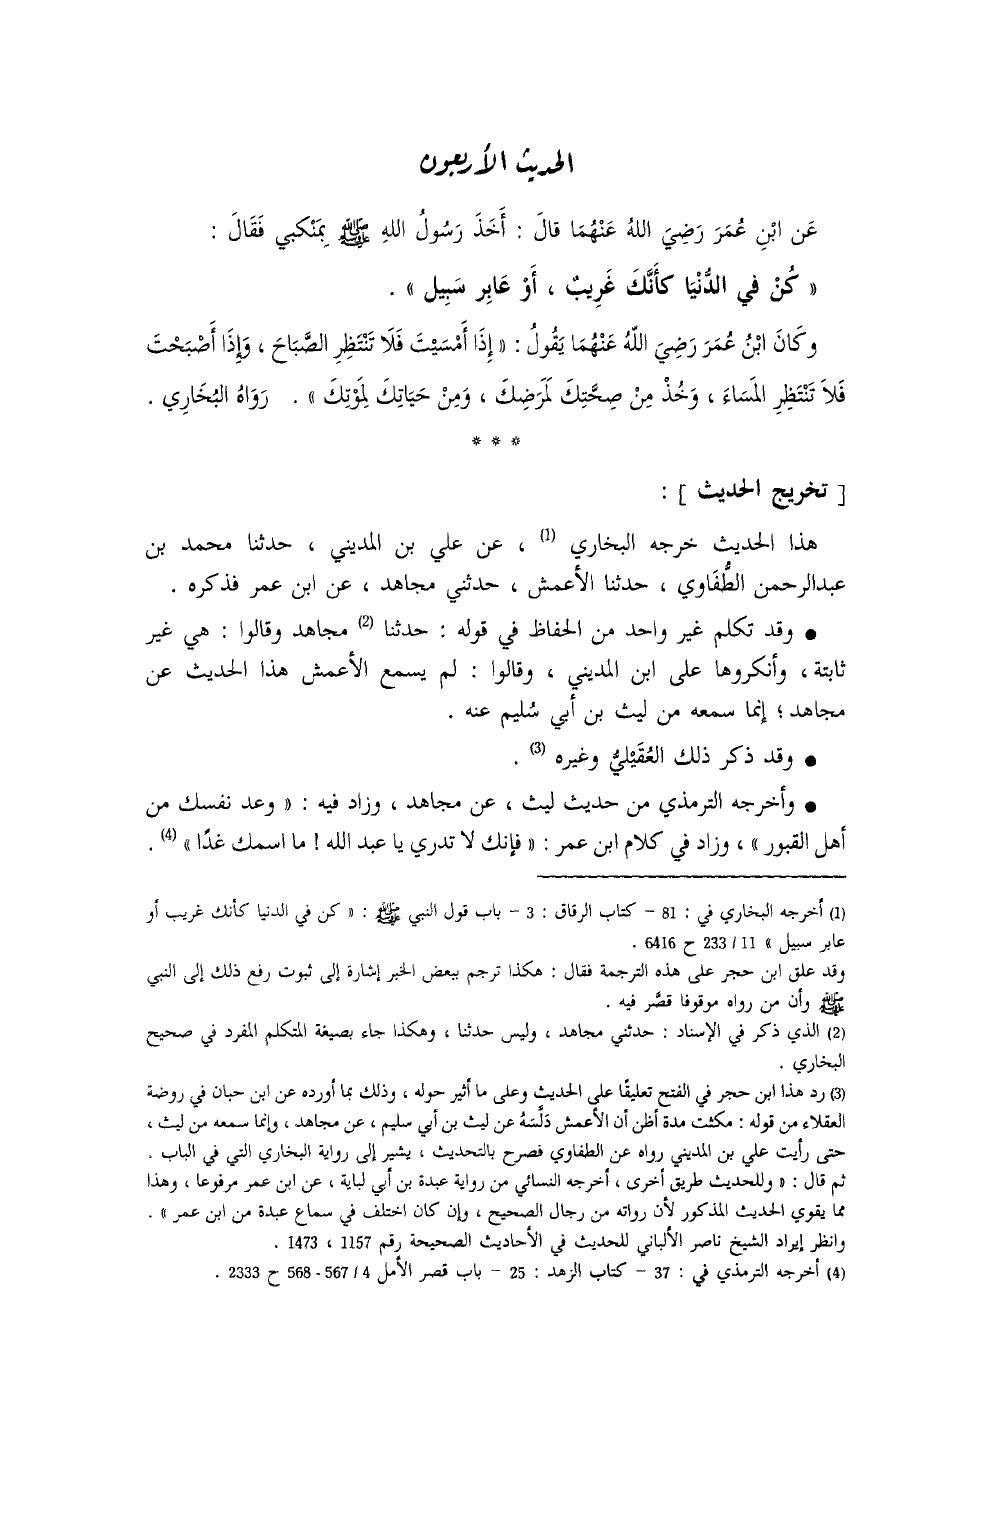 الحديث الأربعون
عَن ابْنِ عُمَرَ رَضِيَ اللهُ عَنْهُمَا قالَ : أَخَذَ رَسُولُ اللهِ ﷺ بِمَنْكبي فَقَالَ :
« كُنْ في الدُّنْيَا كأَنَّكَ غَرِيبٌ ، أَوْ عَابِر سَبِيل » .
وكَانَ ابْنُ عُمَرَ رَضِيَ اللهُ عَنْهُمَا يَقُولُ : « إِذَا أَمْسَيْتَ فَلَا تَنْتَظِرِ الصَّبَاحَ ، وَإِذَا أَصْبَحْتَ
فَلاَ تَنْتَظِرِ المَسَاءَ ، وَخُذْ مِنْ صِحَّتِكَ لَمَرَضِكَ ، وَمِنْ حَيَاتِكَ لِمَوْتِكَ » . رَوَاهُ البُخَارِي .
* * *
[ تخريج الحديث ] :
هذا الحديث خرجه البخاري (1) ، عن علي بن المديني ، حدثنا محمد بن
عبدالرحمن الطُّفَاوي ، حدثنا الأعمش ، حدثني مجاهد ، عن ابن عمر فذكره .
● وقد تكلم غير واحد من الحفاظ في قوله : حدثنا (2) مجاهد وقالوا : هي غير
ثابتة ، وأنكروها على ابن المديني ، وقالوا : لم يسمع الأعمش هذا الحديث عن
مجاهد ؛ إنما سمعه من ليث بن أبي سُليم عنه .
● وقد ذكر ذلك العُقَيْليُّ وغيره (3) .
● وأخرجه الترمذي من حديث ليث ، عن مجاهد ، وزاد فيه : « وعد نفسك من
أهل القبور » ، وزاد في كلام ابن عمر : « فإنك لا تدري يا عبد الله ! ما اسمك غدًا » (4) .
(1) أخرجه البخاري في : 81 – كتاب الرقاق : 3 – باب قول النبي ﷺ : « كن في الدنيا كأنك غريب أو
عابر سبيل » 11 / 233 ح 6416 .
وقد علق ابن حجر على هذه الترجمة فقال : هكذا ترجم ببعض الخبر إشارة إلى ثبوت رفع ذلك إلى النبي
ﷺ وأن من رواه موقوفا قصَّر فيه .
(2) الذي ذكر في الإسناد : حدثني مجاهد ، وليس حدثنا ، وهكذا جاء بصيغة المتكلم المفرد في صحيح
البخاري .
(3) رد هذا ابن حجر في الفتح تعليقًا على الحديث وعلى ما أثير حوله ، وذلك بما أورده عن ابن حبان في روضة
العقلاء من قوله : مكثت مدة أظن أن الأعمش دَلَّسَهُ عن ليث بن أبي سليم ، عن مجاهد ، وإنما سمعه من ليث ،
حتى رأيت علي بن المديني رواه عن الطفاوي فصرح بالتحديث ، يشير إلى رواية البخاري التي في الباب .
ثم قال : « وللحديث طريق أخرى ، أخرجه النسائي من رواية عبدة بن أبي لباية ، عن ابن عمر مرفوعا ، وهذا
مما يقوي الحديث المذكور لأن رواته من رجال الصحيح ، وإن كان اختلف في سماع عبدة من ابن عمر » .
وانظر إيراد الشيخ ناصر الألباني للحديث في الأحاديث الصحيحة رقم 1157 ، 1473 .
(4) أخرجه الترمذي في : 37 – كتاب الزهد : 25 – باب قصر الأمل 4 / 567 - 568 ح 2333 .